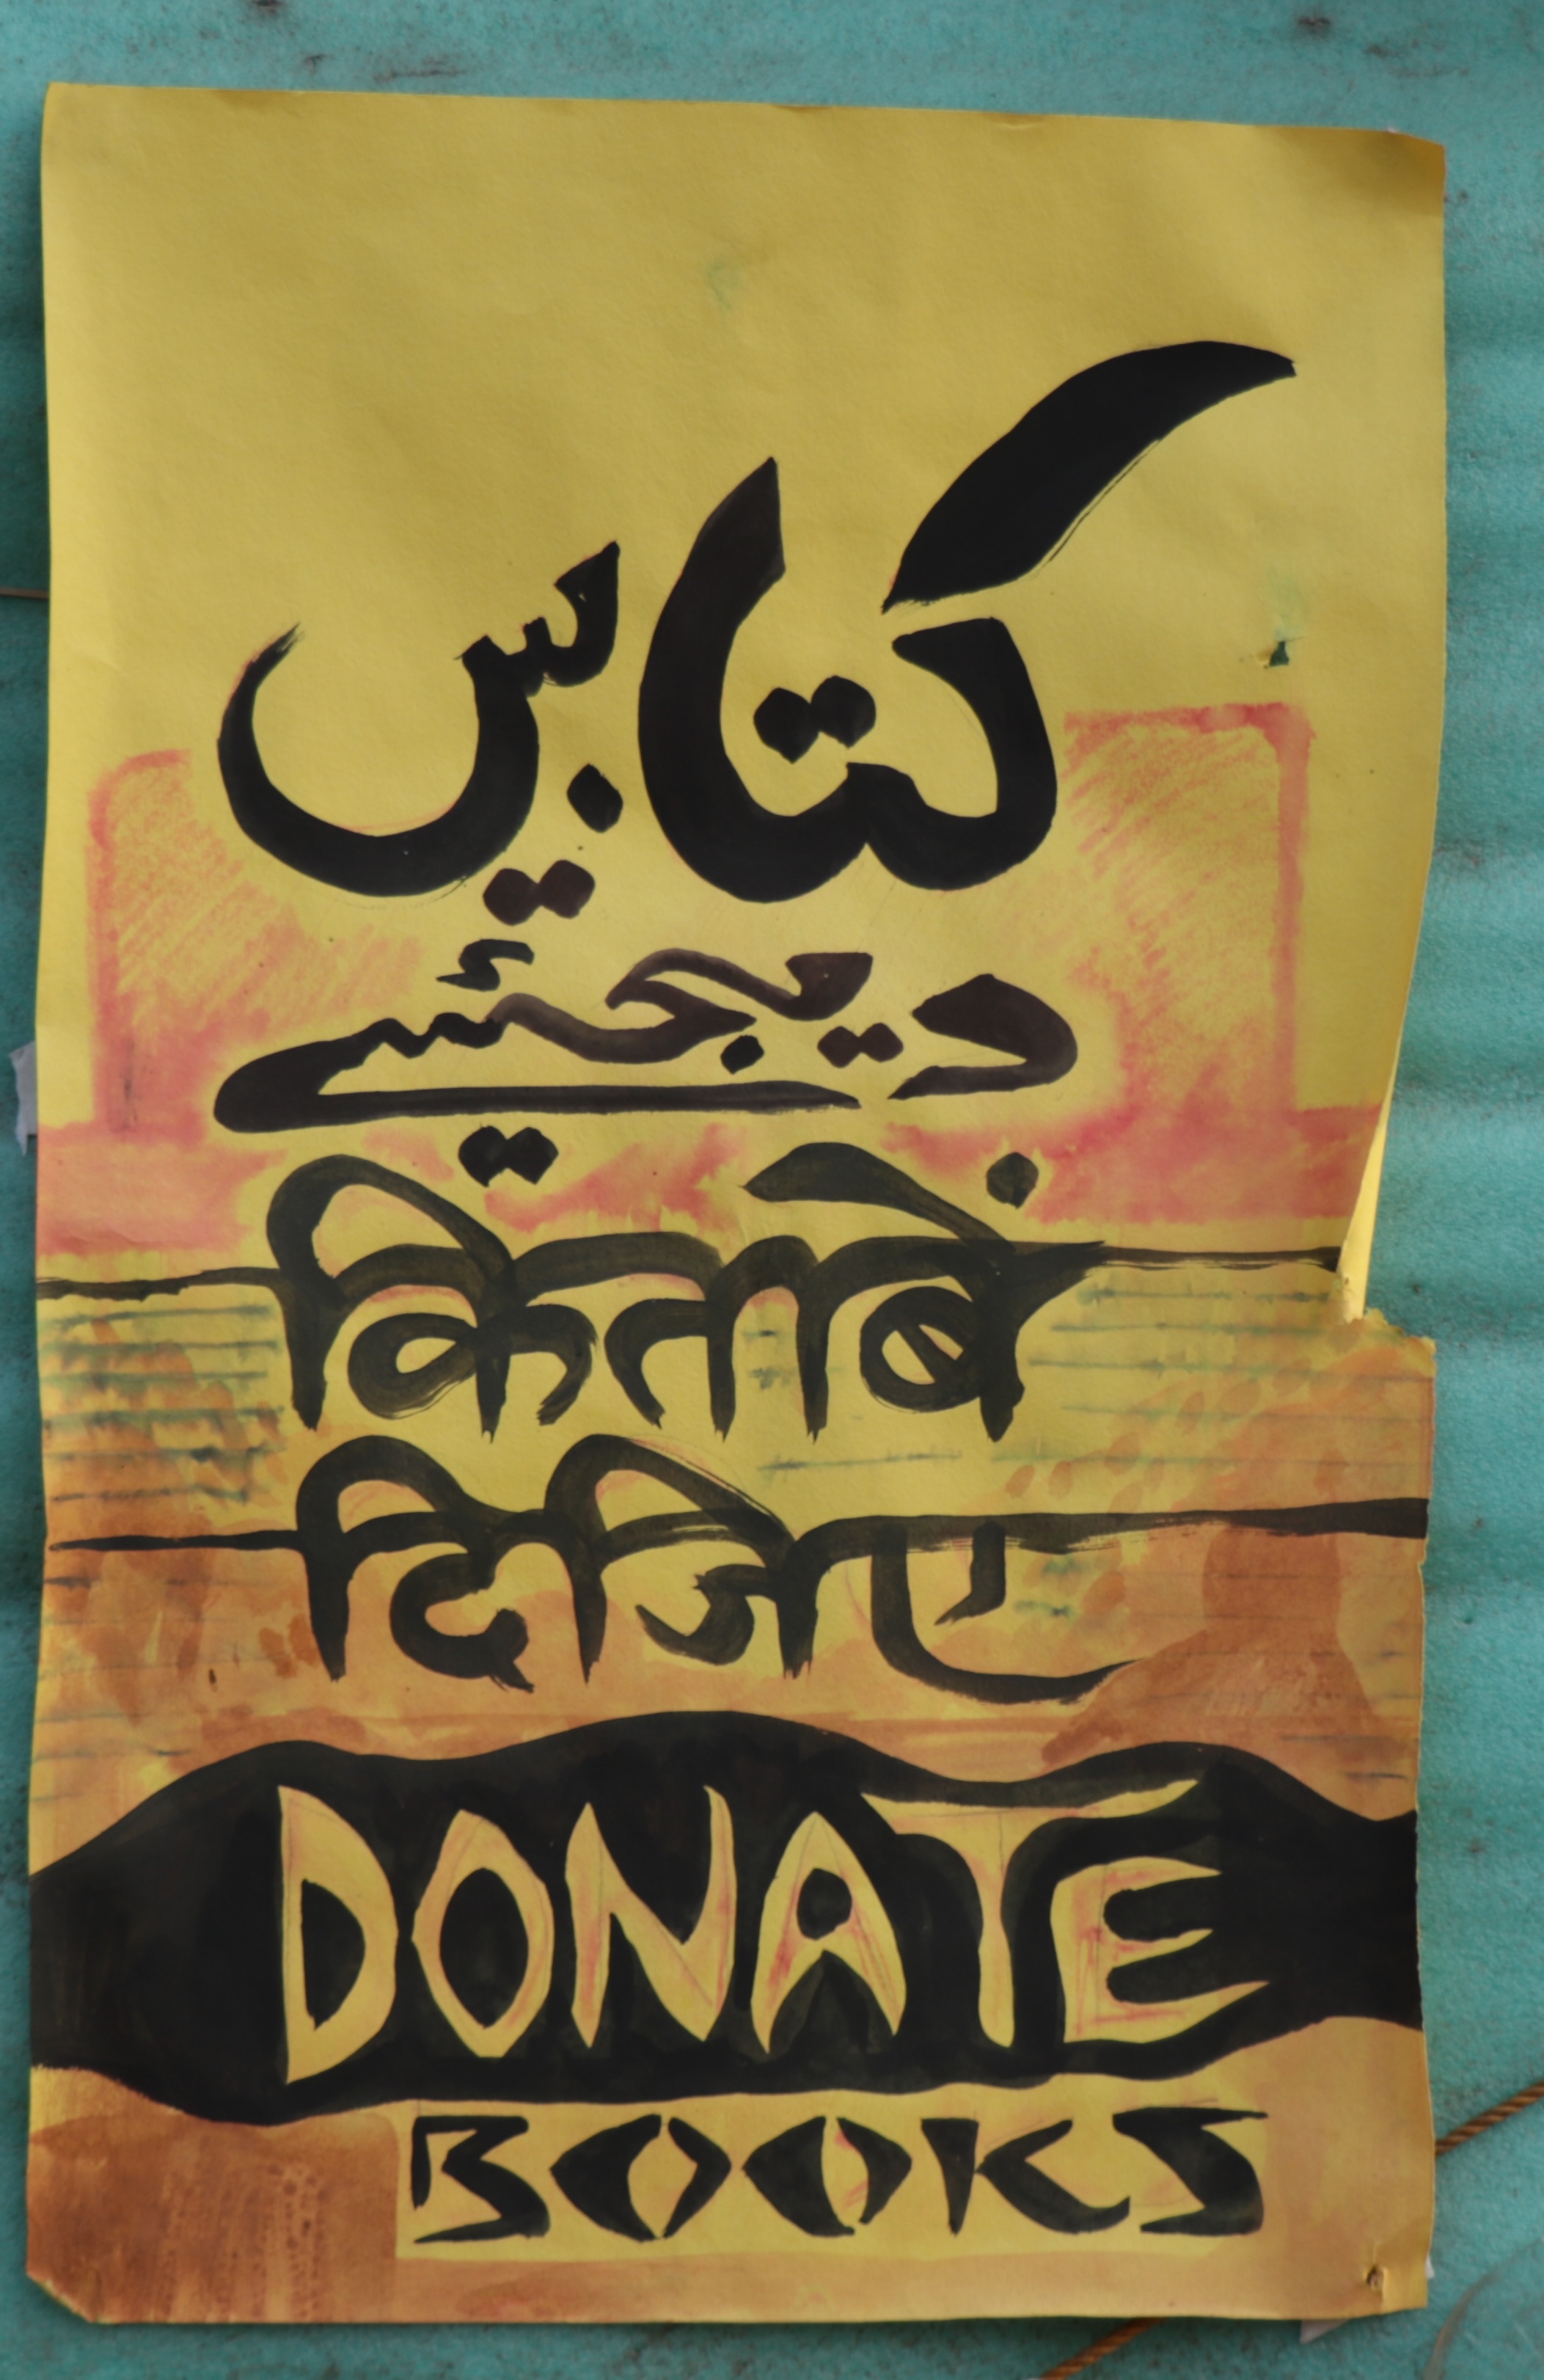 کتابیں
دیجئے
किताबें
दिजिए
DONATE
BOOKS